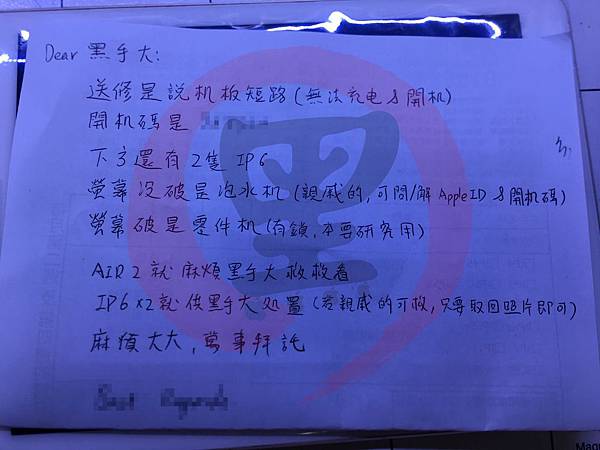 Dear 黑手大:
送修是說机板短路(無法充电&開机)
開机碼是
下方還有2隻 IP6
螢幕沒破是泡水机(親戚的,可問/解 AppleID &開机碼)
螢幕破是零件机(有鎖,本要研究用)
AIR2就麻煩黑手大救救看
IP6 x2就供黑手大処置(若親戚的可救,只要取回照片即可)
麻煩大大,萬事拜託
黑